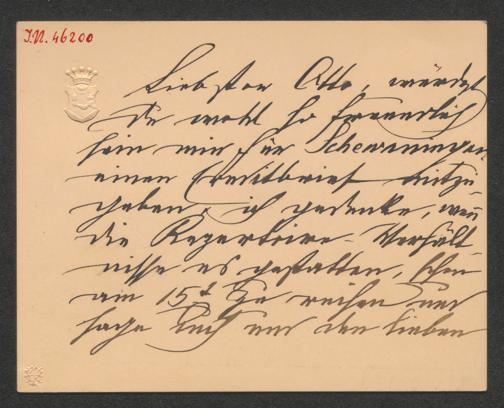 J.N. 46200
Liebster Otto, würdest
Du wohl so freundlich
sein mir für Scheveningen
einen Creditbrief mitzu
geben, ich gedenke, wenn
die Repertoire-Verhält
nisse es gestatten, schon
am 15t zu reisen und
sage Euch und den lieben